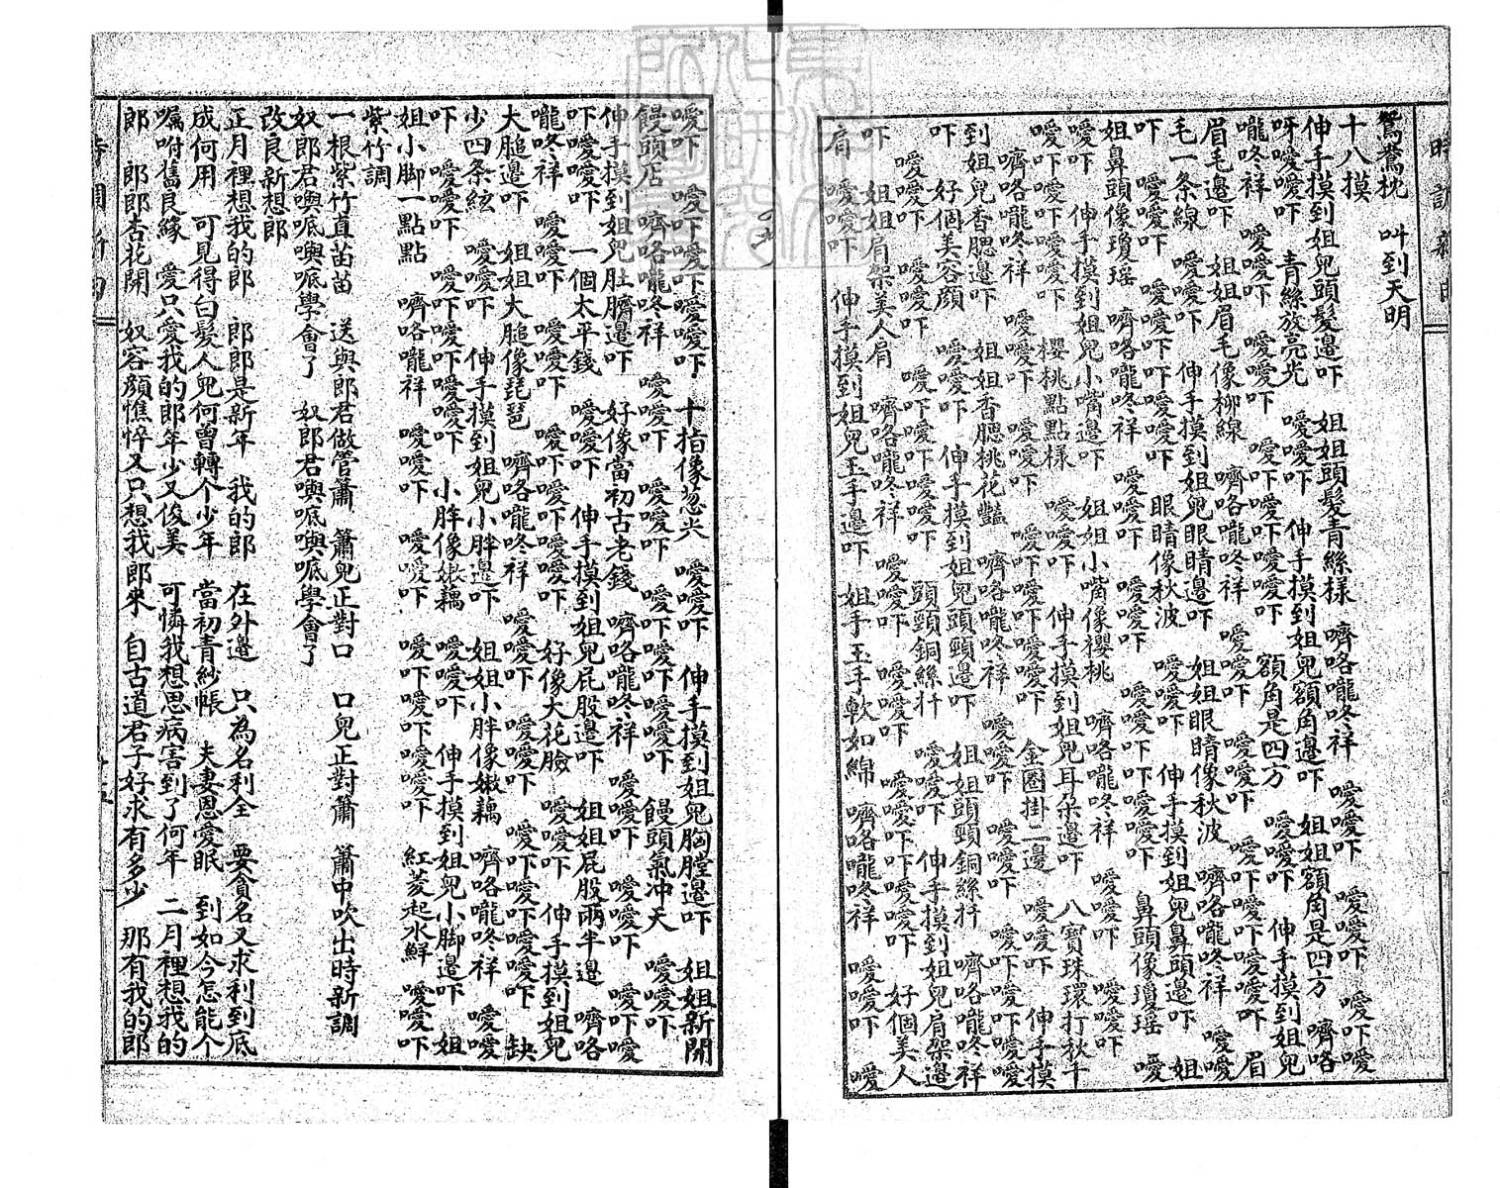 鴛鴦枕　叫到天明
十八摸
伸手摸到姐兒頭髮邊吓　姐姐頭髮青絲樣　嚌咯嚨咚祥　噯噯吓　噯噯吓　噯吓噯
呀噯噯吓　青絲放亮光　噯噯吓　伸手摸到姐兒額角邊吓　姐姐額角是四方　嚌咯
嚨咚祥　噯噯吓　噯噯吓　噯吓噯吓噯噯吓　額角是四方　噯噯吓　伸手摸到姐兒
眉毛邊吓　姐姐眉毛像柳線　嚌咯嚨咚祥　噯噯吓　噯噯吓　噯吓噯吓噯噯吓　眉
毛一条線　噯噯吓　伸手摸到姐兒眼睛邊吓　姐姐眼睛像秋波　嚌咯嚨咚祥　噯噯
吓　噯噯吓　噯噯吓吓噯噯吓　眼睛像秋波　噯噯吓　伸手摸到姐兒鼻頭邊吓　姐
姐鼻頭像瓊瑶　嚌咯嚨咚祥　噯噯吓　噯噯吓　噯噯吓吓噯噯吓　鼻頭像瓊瑶　噯
噯吓　伸手摸到姐兒小嘴邊吓　姐姐小嘴像櫻桃　嚌咯嚨咚祥　噯噯吓　噯噯吓
噯吓噯吓噯噯吓　櫻桃點點樣　噯噯吓　伸手摸到姐兒耳朵邊吓　八寶珠環打秋千
嚌咯嚨咚祥　噯噯吓　噯噯吓　噯吓噯吓噯噯吓　金圈掛二邊　噯噯吓　伸手摸
到姐兒香腮邊吓　姐姐香腮桃花豔　嚌咯嚨咚祥　噯噯吓　噯噯吓　噯吓噯吓噯噯
吓　好個美容顏　噯噯吓　伸手摸到姐兒頭頸邊吓　姐姐頭頸銅絲扦　嚌咯嚨咚祥
噯噯吓　噯噯吓　噯吓噯吓噯噯吓　頭頸銅絲扦　噯噯吓　伸手摸到姐兒肩架邊
吓　姐姐肩架美人肩　嚌咯嚨咚祥　噯噯吓　噯噯吓　噯噯吓吓噯噯吓　好個美人
肩　噯噯吓　伸手摸到姐兒玉手邊吓　姐手玉手軟如綿　嚌咯嚨咚祥　噯噯吓　噯
噯吓　噯吓噯吓噯噯吓　十指像葱尖　噯噯吓　伸手摸到姐兒胸膛邊吓　姐姐新開
饅頭店　嚌咯嚨咚祥　噯噯吓　噯噯吓　噯吓噯吓噯噯吓　饅頭氣冲天　噯噯吓
伸手摸到姐兒肚臍邊吓　好像當初古老錢　嚌咯嚨咚祥　噯噯吓　噯噯吓　噯吓噯
吓噯噯吓　一個太平錢　噯噯吓　伸手摸到姐兒屁股邊吓　姐姐屁股兩半邊　嚌咯
嚨咚祥　噯噯吓　噯噯吓　噯吓噯吓噯噯吓　好像大花臉　噯噯吓　伸手摸到姐兒
大腿邊吓　姐姐大腿像琵琶　嚌咯嚨咚祥　噯噯吓　噯噯吓　噯吓噯吓噯噯吓　缺
少四条絃　噯噯吓　伸手摸到姐兒小胖邊吓　姐姐小胖像嫩藕　嚌咯嚨咚祥　噯噯
吓　噯噯吓　噯吓噯吓噯噯吓　小胖像嫩藕　噯噯吓　伸手摸到姐兒小脚邊吓　姐
姐小脚一點點　嚌咯嚨咚祥　噯噯吓　噯噯吓　噯吓噯吓噯噯吓　紅菱起水鮮　噯噯吓
紫竹調
一根紫竹直苗苗　送與郎君做管簫　簫兒正對口　口兒正對簫　簫中吹出時新調
奴郎君㗱呧㗱呧學會了　奴郎君㗱呧㗱呧學會了
改良新想郎
正月裡想我的郎　郎郎是新年　我的郎　在外邊　只為名利全　要貪名又求利到底
成何用　可見得白髮人兒何曾轉个少年　當初青紗帳　夫妻恩愛眠　到如今怎能个
囑咐舊良緣　愛只愛我的郎年少又俊美　可憐我想思病害到了何年　二月裡想我的
郎　郎郎杏花開　奴容顏憔悴又只想我郎來　自古道君子好求有多少　那有我的郎